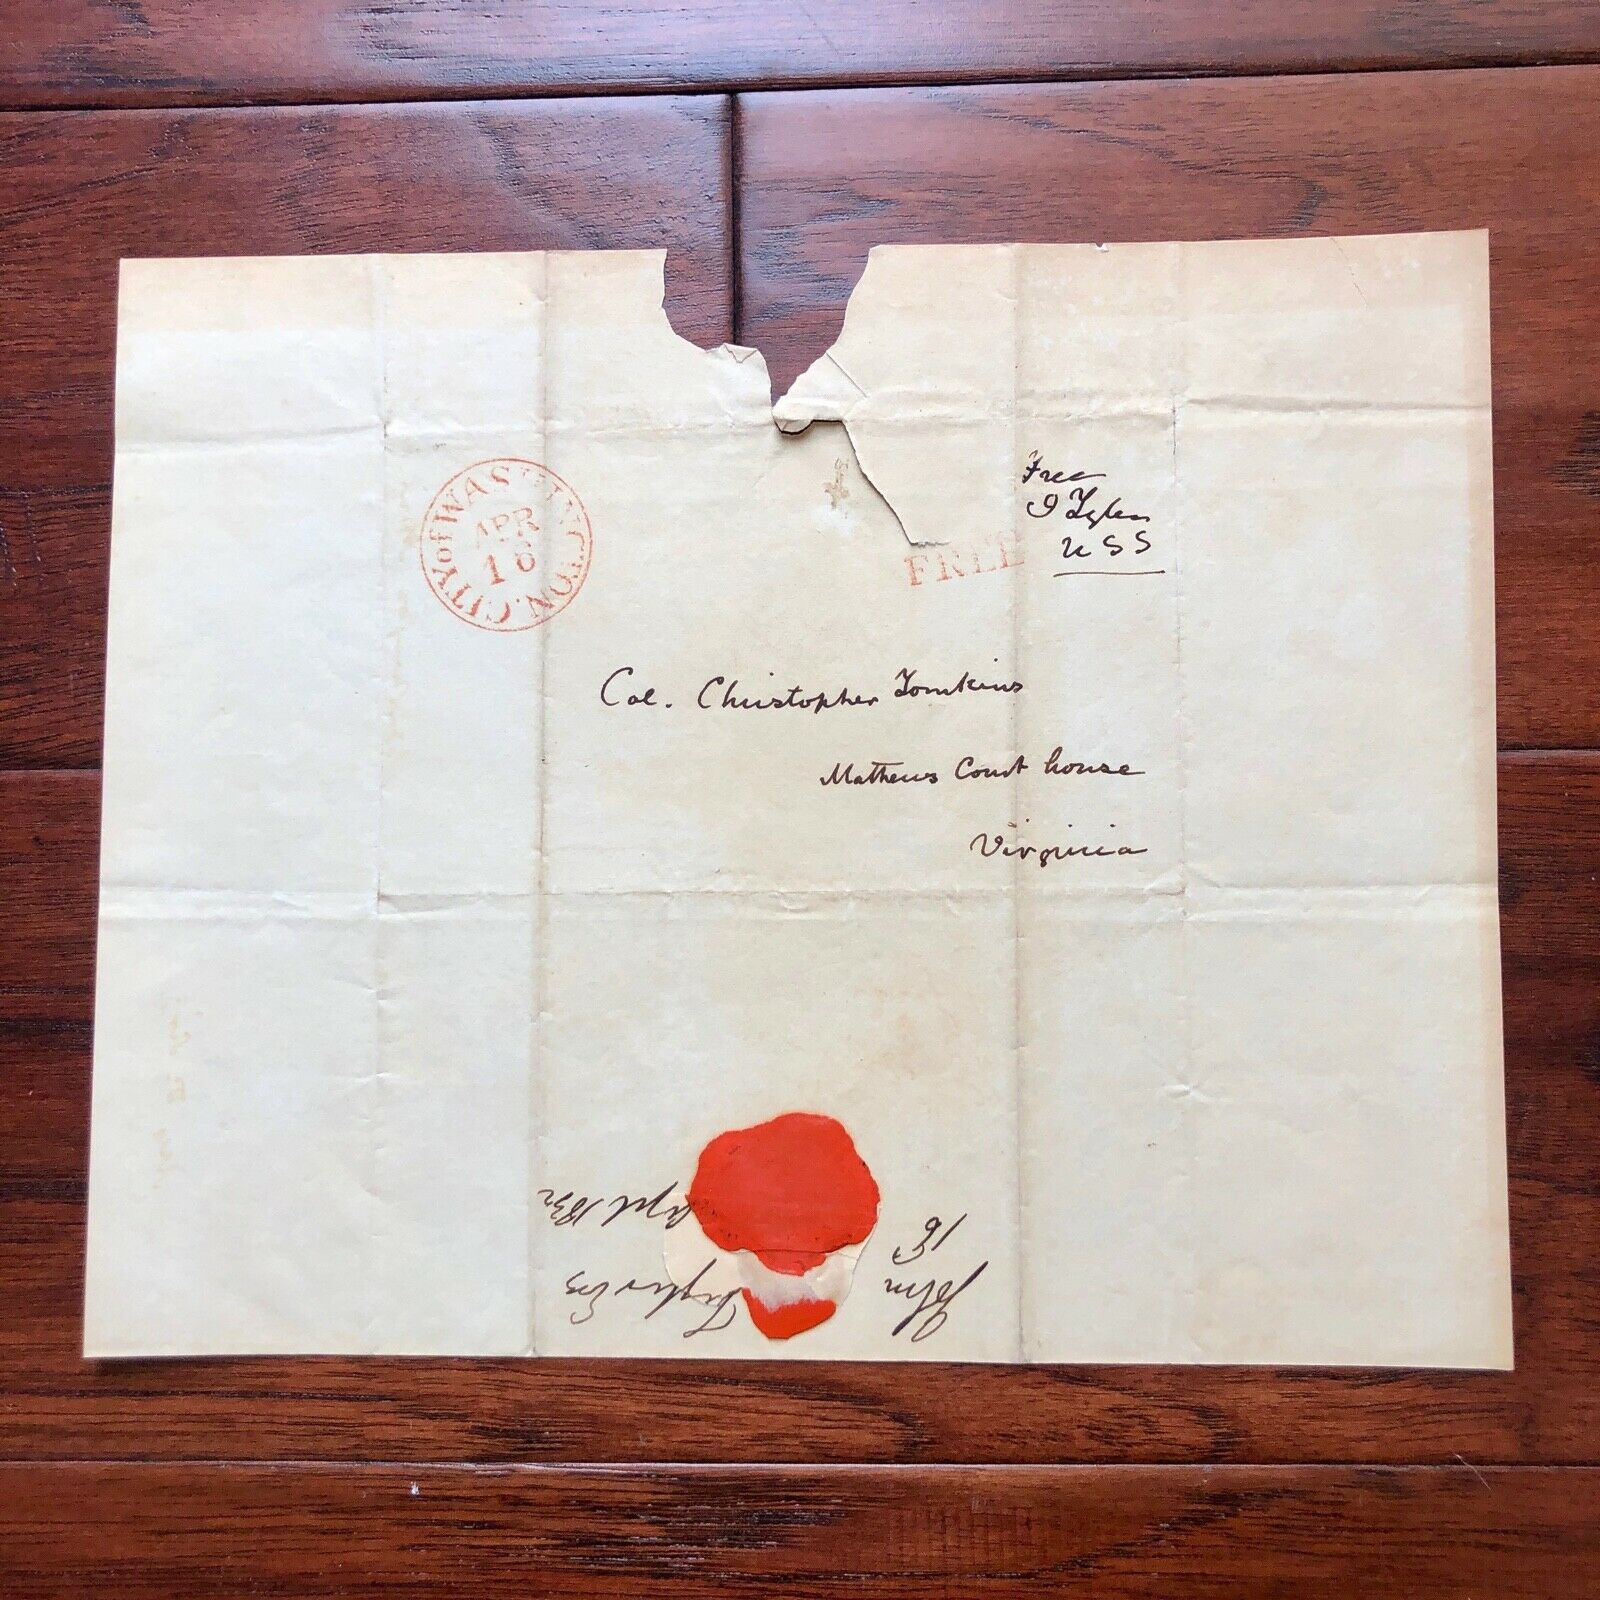 CITY of WASHINGTON.
APR
16
Free
J Tyler
U S S
FREE
Col. Christopher Tomkins
Mathews Court house
Virginia
John Tyler Esq
16 April 1832